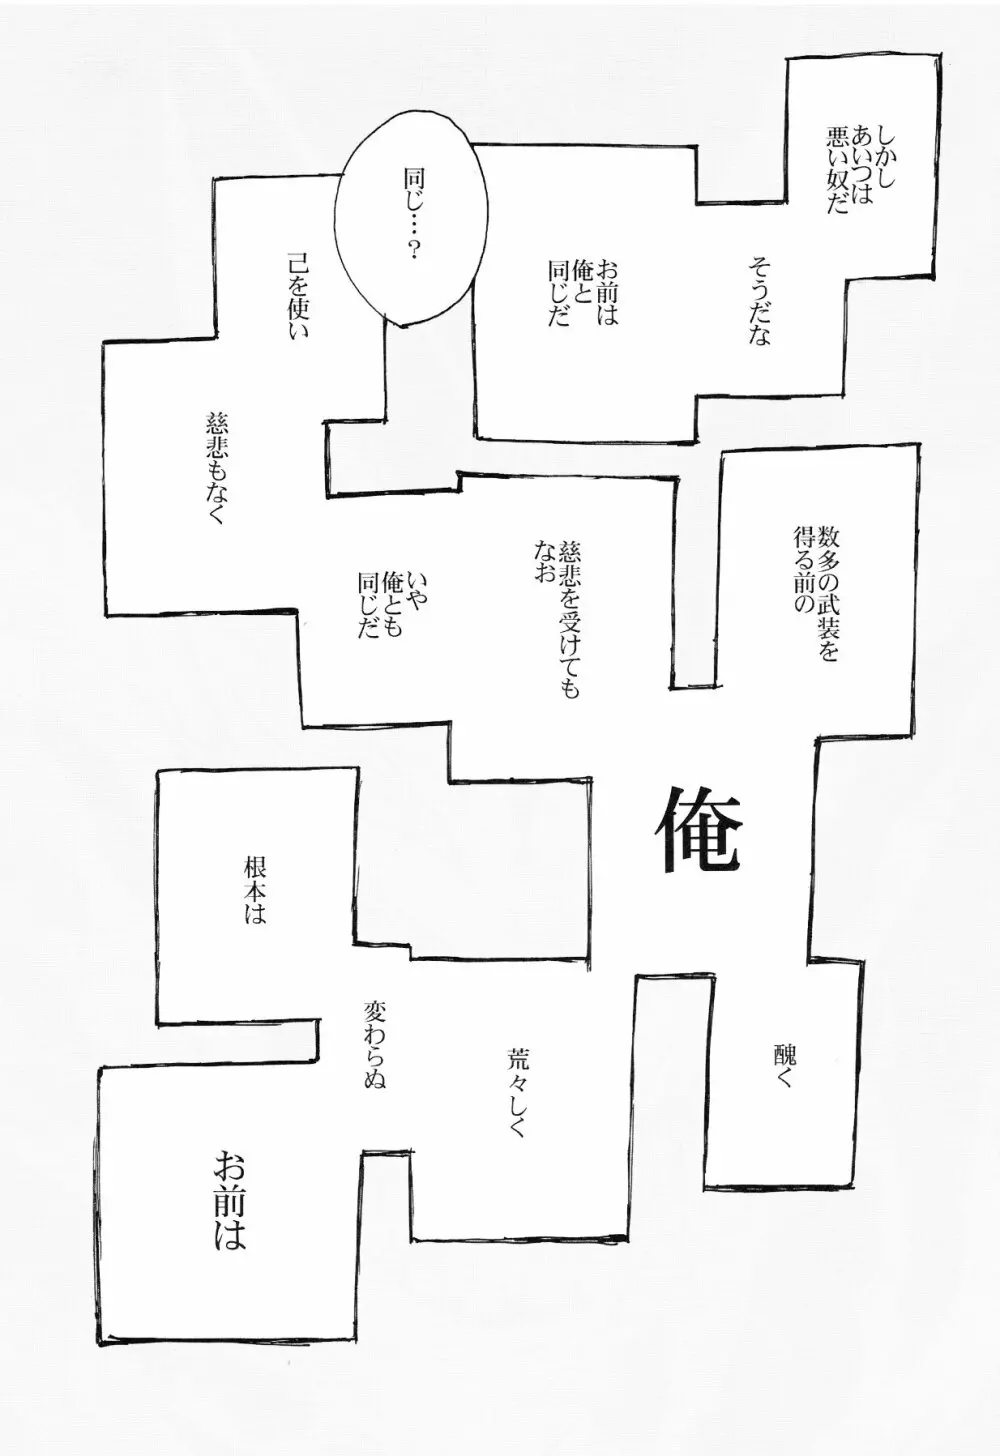 しかし
あいつは
悪い奴だ
そうだな
お前は
俺と
同じだ
同じ…？
己を使い
慈悲もなく
数多の武装を
得る前の
俺
慈悲を受けても
なお
いや
俺とも
同じだ
醜く
荒々しく
変わらぬ
根本は
お前は